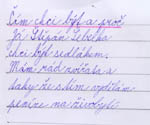 Čím chci být a proč
Já Štěpán Lebeda
chci být sedlákem.
Mám rád zvířata a
taky že s tím vydělám
peníze na živobytí.